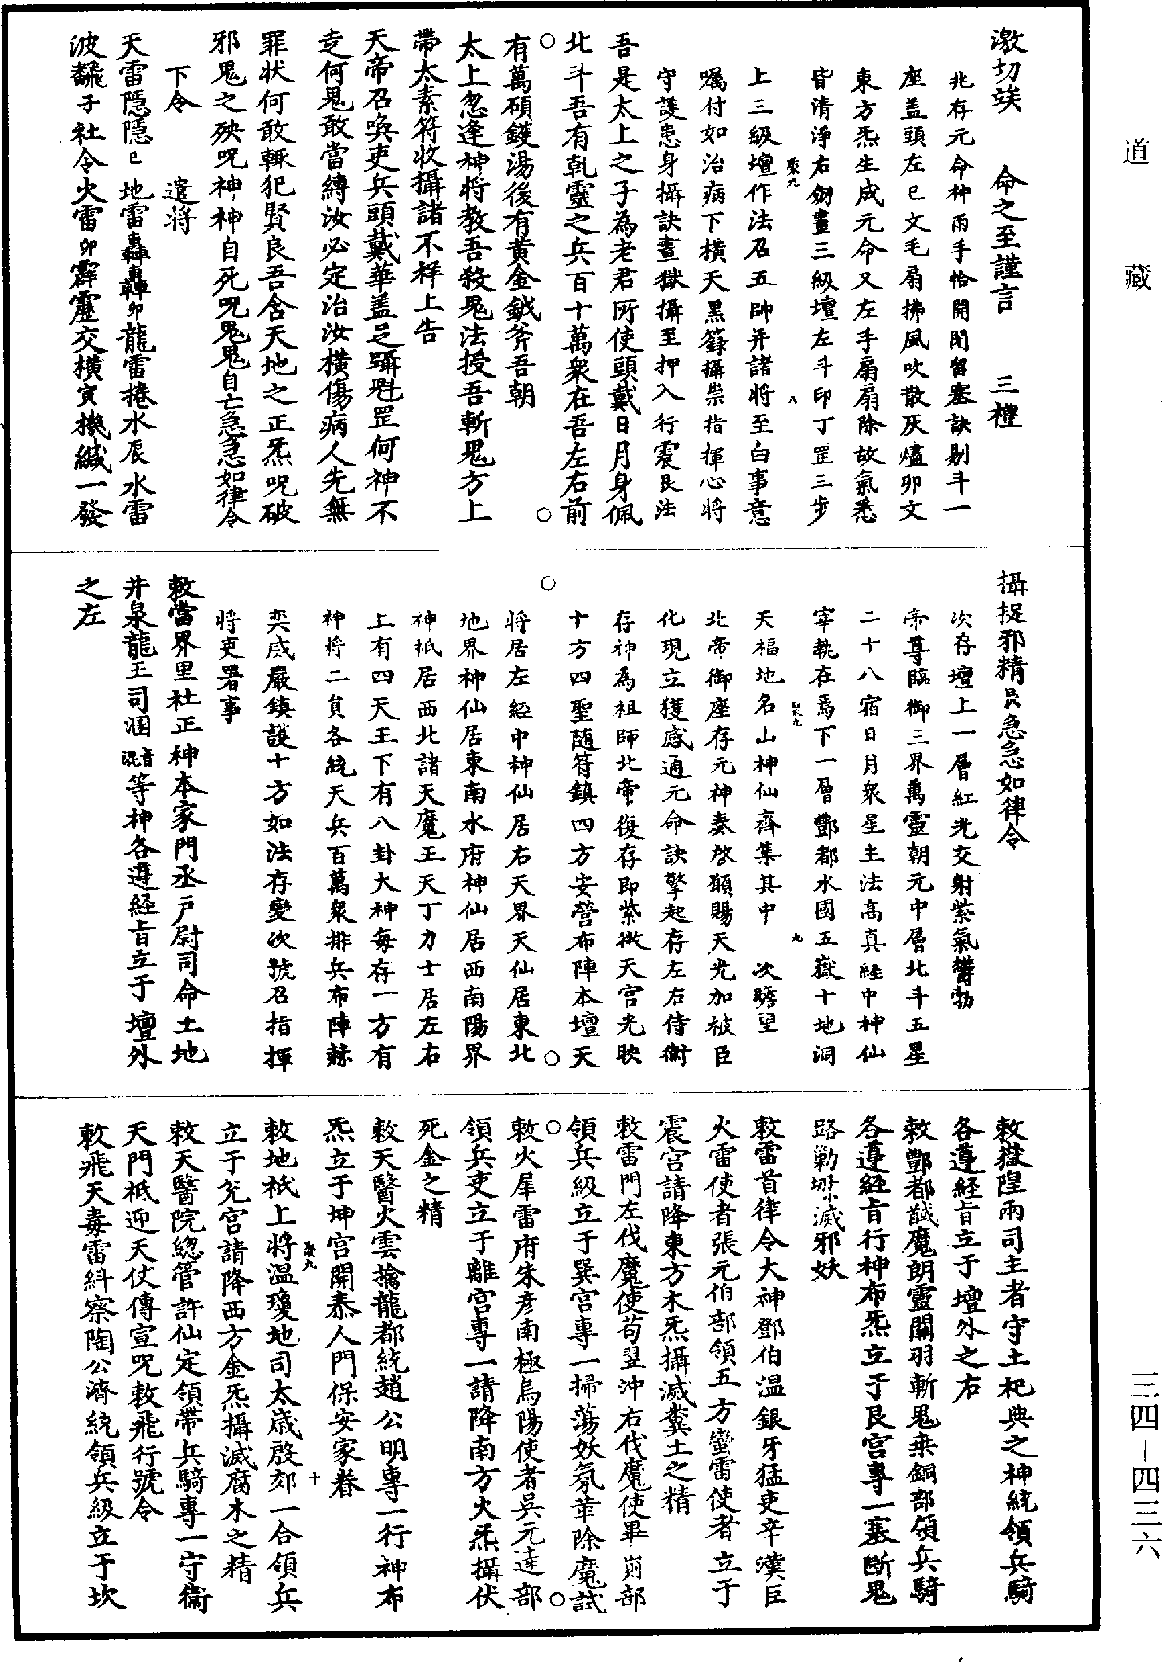 道藏
激切竢　命之至謹言　三禮
兆存元命神兩手恰開閉留塞訣剔斗一
座盖頭左巳文毛扇拂風吹散灰燼卯文
東方炁生成元命又左手扇扇除故氣悉
皆清淨右劒畫三級壇左斗印丁罡三步
上三級壇作法召五帥并諸將至白事意
囑付如治病下橫天黑籙攝祟指揮心將
守護患身攝訣書獄攝至押入行震艮法
吾是太上之子為老君所使頭戴日月身佩
北斗吾有乹靈之兵百十萬衆在吾左右前
有萬碩鑊湯後有黄金鉞斧吾朝
太上忽逢神將教吾殺鬼法授吾斬鬼方上
帶太素符收攝諸不祥上告
天帝召喚吏兵頭戴華盖足躡魁罡何神不
走何鬼敢當縛汝必定治汝橫傷病人先無
罪狀何敢輒犯賢良吾含天地之正炁呪破
邪鬼之殃呪神神自死呪鬼鬼自亡急急如律令
下令　　遣將
天雷隱隱巳地雷轟轟卯龍雷捲水辰水雷
波翻子社令火雷卯霹靂交橫寅機緘一發
攝捉邪精艮急急如律令
次存壇上一層紅光交射紫氣欝勃
帝尊臨御三界萬靈朝元中層北斗五星
二十八宿日月衆星主法高真經中神仙
宰執在焉下一層酆都水國五嶽十地洞
天福地名山神仙齊集其中　次瞻望
北帝御座存元神奏啓願賜天光加被臣
化現立獲感通元命訣擎起存左右侍衛
存神為祖師北帝復存即紫微天宮光映
十方四聖隨符鎮四方安營布陣本壇天
將居左經中神仙居右天界天仙居東北
地界神仙居東南水府神仙居西南陽界
神祇居西北諸天魔王天丁力士居左右
上有四天王下有八卦大神每存一方有
神將二員各統天兵百萬衆排兵布陣赫
奕威嚴鎮護十方如法存變次號召指揮
將吏署事
敕當界里社正神本家門丞戸尉司命土地
井泉龍王司溷音混等神各遵經旨立于壇外
之左
敕嶽隍兩司主者守土祀典之神統領兵騎
各遵經旨立于壇外之右
敕酆都馘魔朗靈關羽斬鬼朱銅部領兵騎
各遵經旨行神布炁立于艮宮專一塞斷鬼
路勦㘽滅邪妖
敕雷首律令大神鄧伯溫銀牙猛吏辛漢臣
火雷使者張元伯部領五方蠻雷使者立于
震宮請降東方木炁攝滅糞土之精
敕雷門左伐魔使苟翌沖右伐魔使畢㓱部
領兵級立于巽宮專一掃蕩妖氛革除魔試
敕火犀雷府朱彥南極烏陽使者吳元達部
領兵吏立于離宮專一請降南方火炁攝伏
死金之精
敕天醫火雲擒龍都統趙公明專一行神布
炁立于坤宮開泰人門保安家眷
敕地祇上將溫瓊地司太歲殷郊一合領兵
立于兊宮請降西方金炁攝滅腐木之精
敕天醫院緫管許仙定領帶兵騎專一守衛
天門祇迎天仗傳宣呪敕飛行號令
敕飛天毒雷糾察陶公濟統領兵級立于坎
三四-四三六